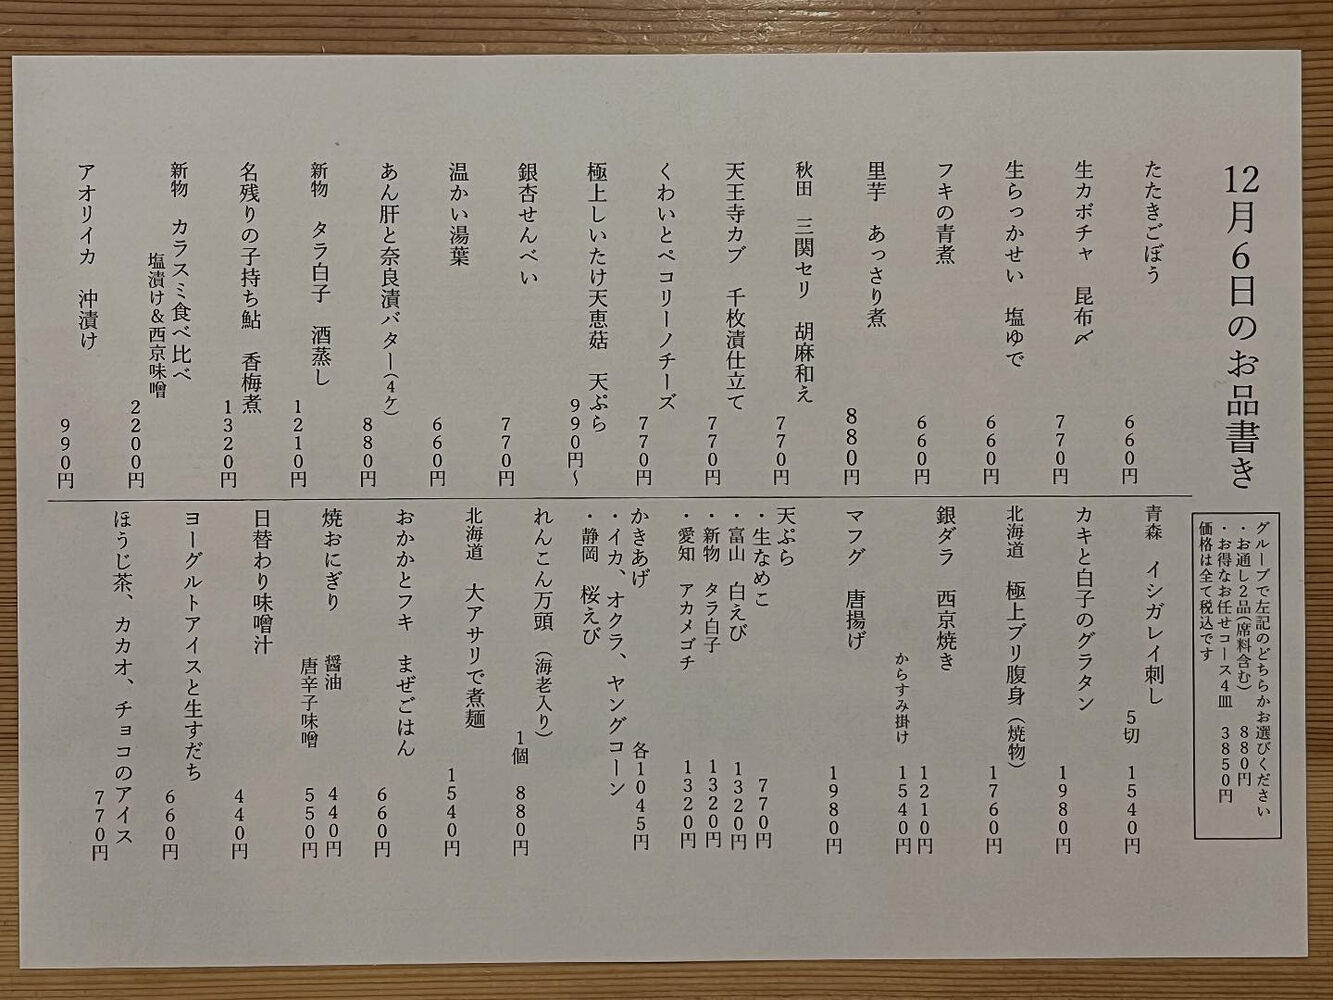 12月6日のお品書き
グループで左記のどちらかお選びください
・お通し2品(席料含む) 880円
・お得なお任せコース4皿 3850円
価格は全て税込です
たたきごぼう 660円
生カボチャ 昆布〆 770円
生らっかせい 塩ゆで 660円
フキの青煮 660円
里芋 あっさり煮 880円
秋田 三関セリ 胡麻和え 770円
天王寺カブ 千枚漬仕立て 770円
くわいとペコリーノチーズ 770円
極上しいたけ天恵菇 天ぷら 990円〜
銀杏せんべい 770円
温かい湯葉 660円
あん肝と奈良漬バター(4ケ) 880円
新物 タラ白子 酒蒸し 1210円
名残りの子持ち鮎 香梅煮 1320円
新物 カラスミ食べ比べ
塩漬け&西京味噌 2200円
アオリイカ 沖漬け 990円
青森 イシガレイ刺し
5切 1540円
カキと白子のグラタン 1980円
北海道 極上ブリ腹身(焼物) 1760円
銀ダラ 西京焼き 1210円
からすみ掛け 1540円
マフグ 唐揚げ 1980円
天ぷら
・生なめこ 770円
・富山 白えび 1320円
・新物 タラ白子 1320円
・愛知 アカメゴチ 1320円
かきあげ 各1045円
・イカ、オクラ、ヤングコーン
・静岡 桜えび
れんこん万頭(海老入り)
1個 880円
北海道 大アサリで煮麺 1540円
おかかとフキ まぜごはん 660円
焼おにぎり 醤油 440円
唐辛子味噌 550円
日替わり味噌汁 440円
ヨーグルトアイスと生すだち 660円
ほうじ茶、カカオ、チョコのアイス 770円